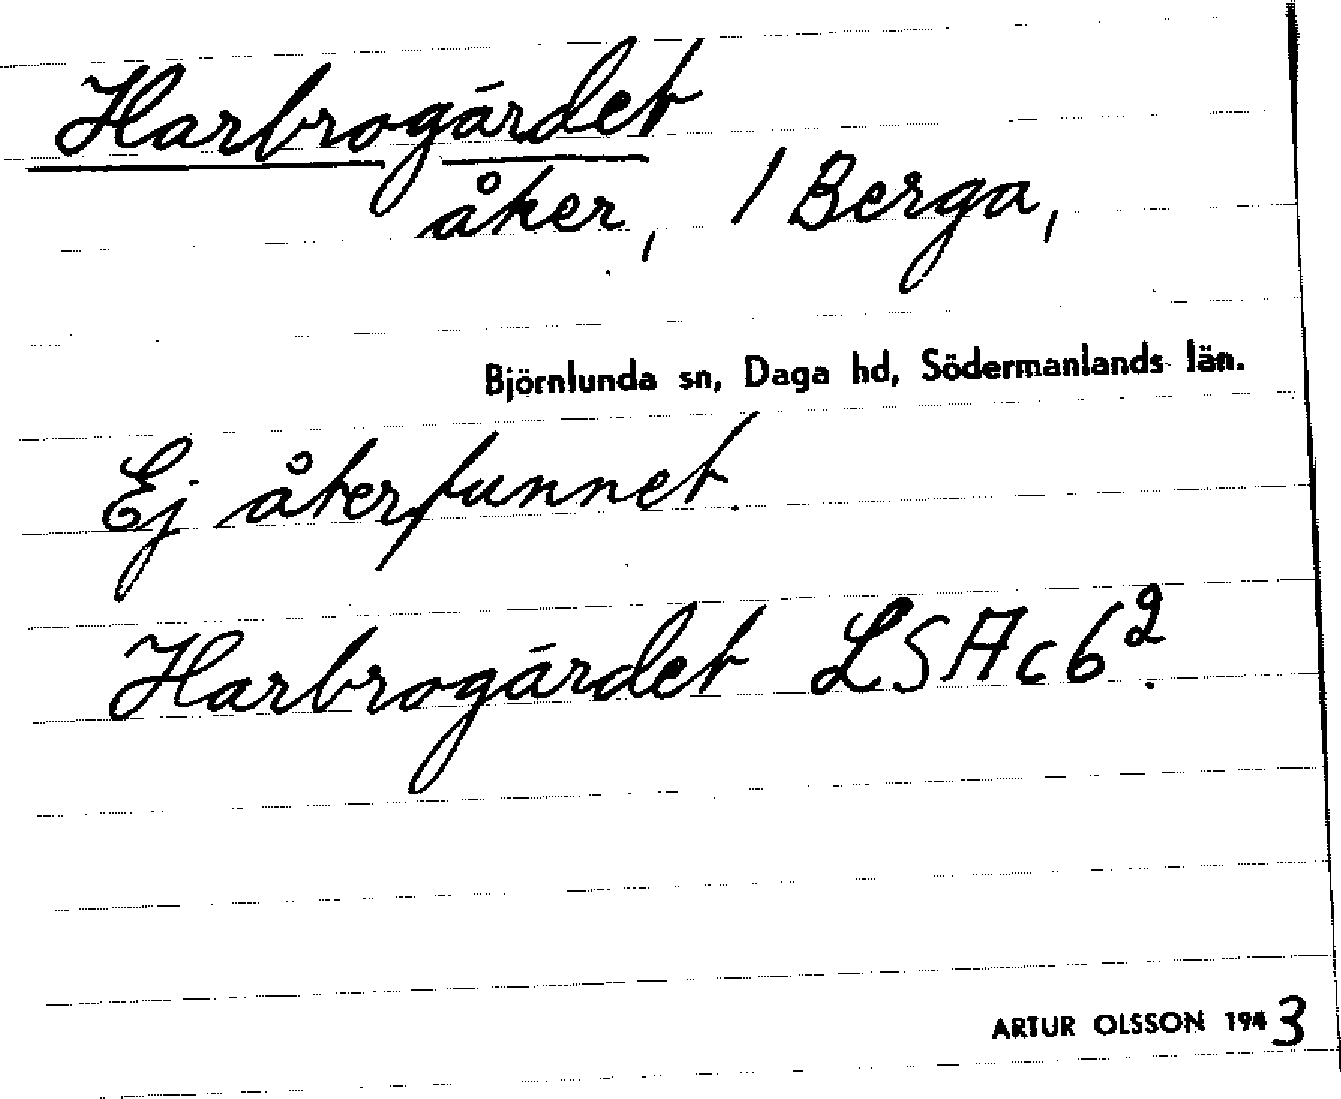 Harbrogärdet
åker, / Berga,
Björnlunda sn, Daga hd, Södermanlands län.
Ej återfunnet.
Harbrogärdet LSA c 6².
ARTUR OLSSON 1943